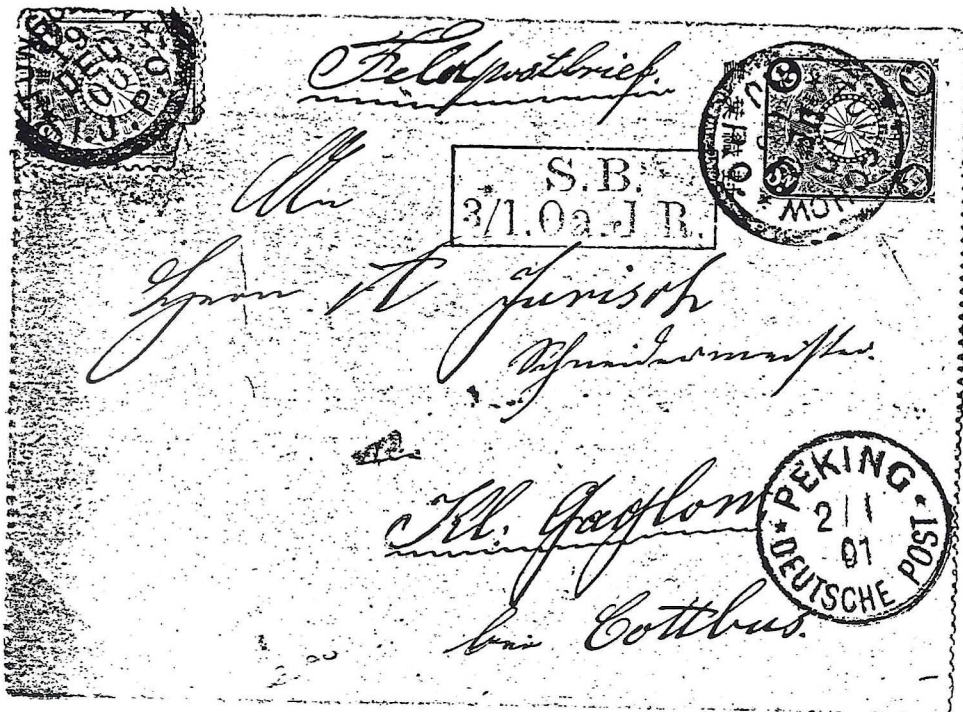 Feldpostbrief.
19
DEC
00
I.J.P.O.
S.B.
3/1.Oa.J.R.
An
Herrn A Jurisch
Schneidermeister.
in
Kl. Gaglow
bei Cottbus.
PEKING
2 1
01
DEUTSCHE POST